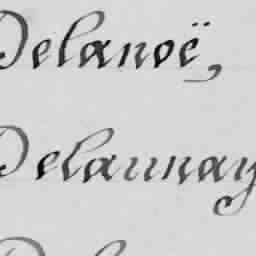 Delanoë,
Delaunay